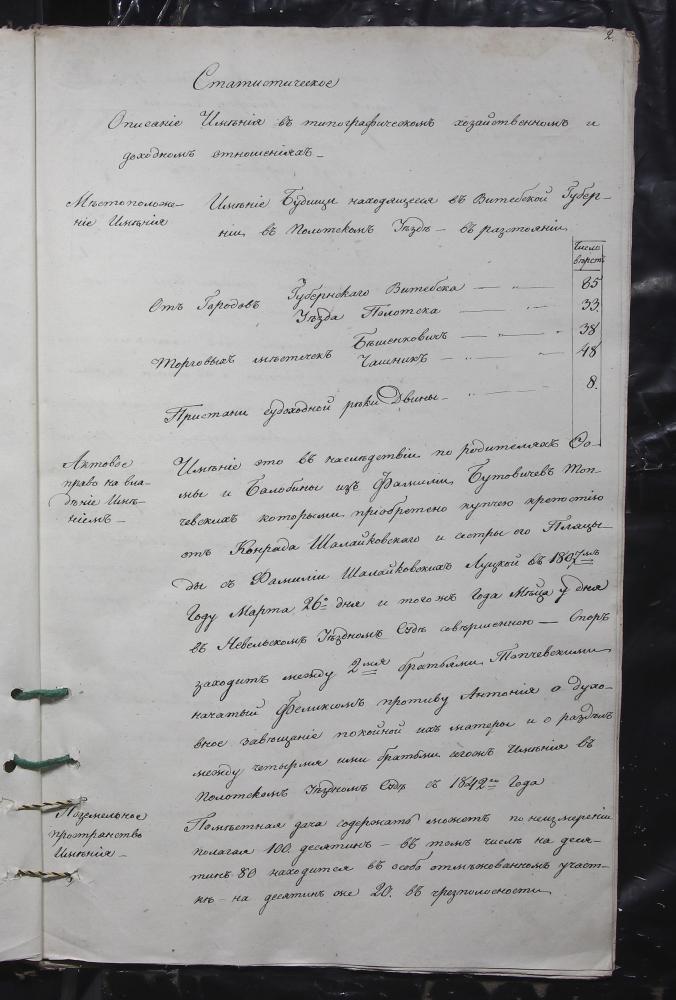 2.
Статистическое
Описаніе Имѣнія въ типографическомъ хозяйственномъ и
доходномъ отношеніяхъ _
Мѣстоположе-
ніе Имѣнія
Имѣніе Будищи находящееся въ Витебской Губер-
ніи, въ Полотскомъ Уѣздѣ — въ разстояніи
Число
верстъ
Губернскаго Витебска — „ — 85
Отъ Городовъ Уѣзда Полотска — „ — 33.
Бѣшенковичъ — „ — „ 38
Торговыхъ мѣстечекъ Чашникъ — „ — „ 48
Пристани судоходной рѣки Двины — „ — 8.
Актовое
право на вла-
дѣніе Имѣ-
ніемъ —
Имѣніе это въ наслѣдствіи по родителяхъ Ѳо-
мы и Балбины изъ Фамиліи Бутовичевъ Топ-
чевскихъ которыми приобретено купчею крепостію
отъ Конрада Шалайковскаго и сестры его
ды съ Фамиліи Шалайковскихъ Луцкой въ 1807мъ
Году Марта 26о дня и тогожъ Года Мѣца 7 дня
въ Невельскомъ Уѣздномъ Судѣ совершенною — Споръ
заходитъ между 2мя братьями Топчевскими
начатый Феликсомъ противу Антонія о духо-
вное завющаніе покойной ихъ матеры и о раздѣлъ
между четырмя ими братьми сегожъ Имѣнія въ
Полотскомъ Уѣздномъ Судѣ съ 1842го Года
Поземельное
пространство
Имѣнія _
Помѣстная дача содержать можетъ по неизмереніи
полагая 100 десятинъ — въ томъ числѣ на деся-
тинъ 80 находится въ особо отмѣжованномъ участ-
кѣ — на десятинъ же 20. въ чрезполосности